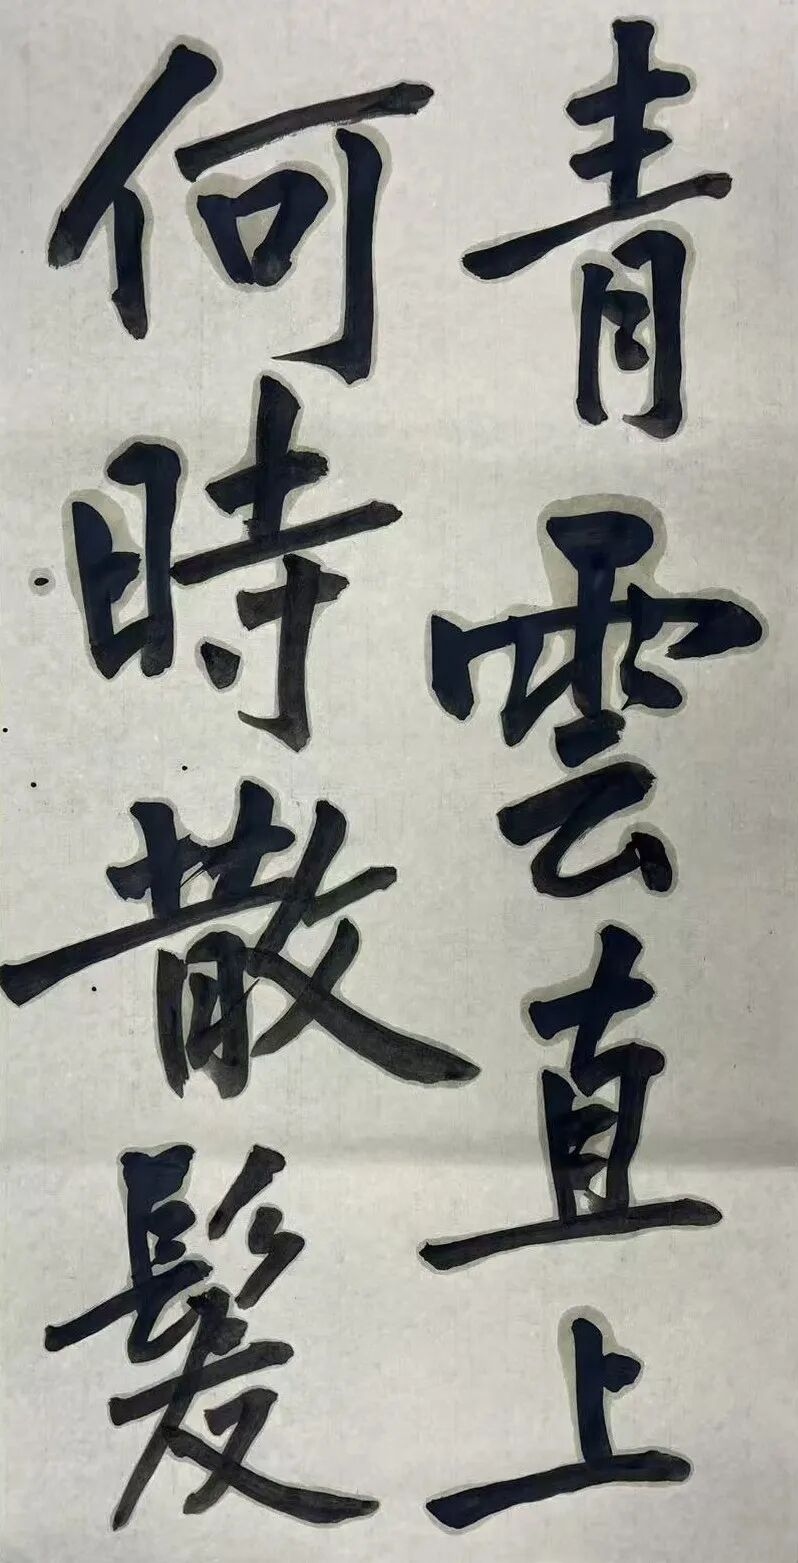 青雲直上
何時散髮